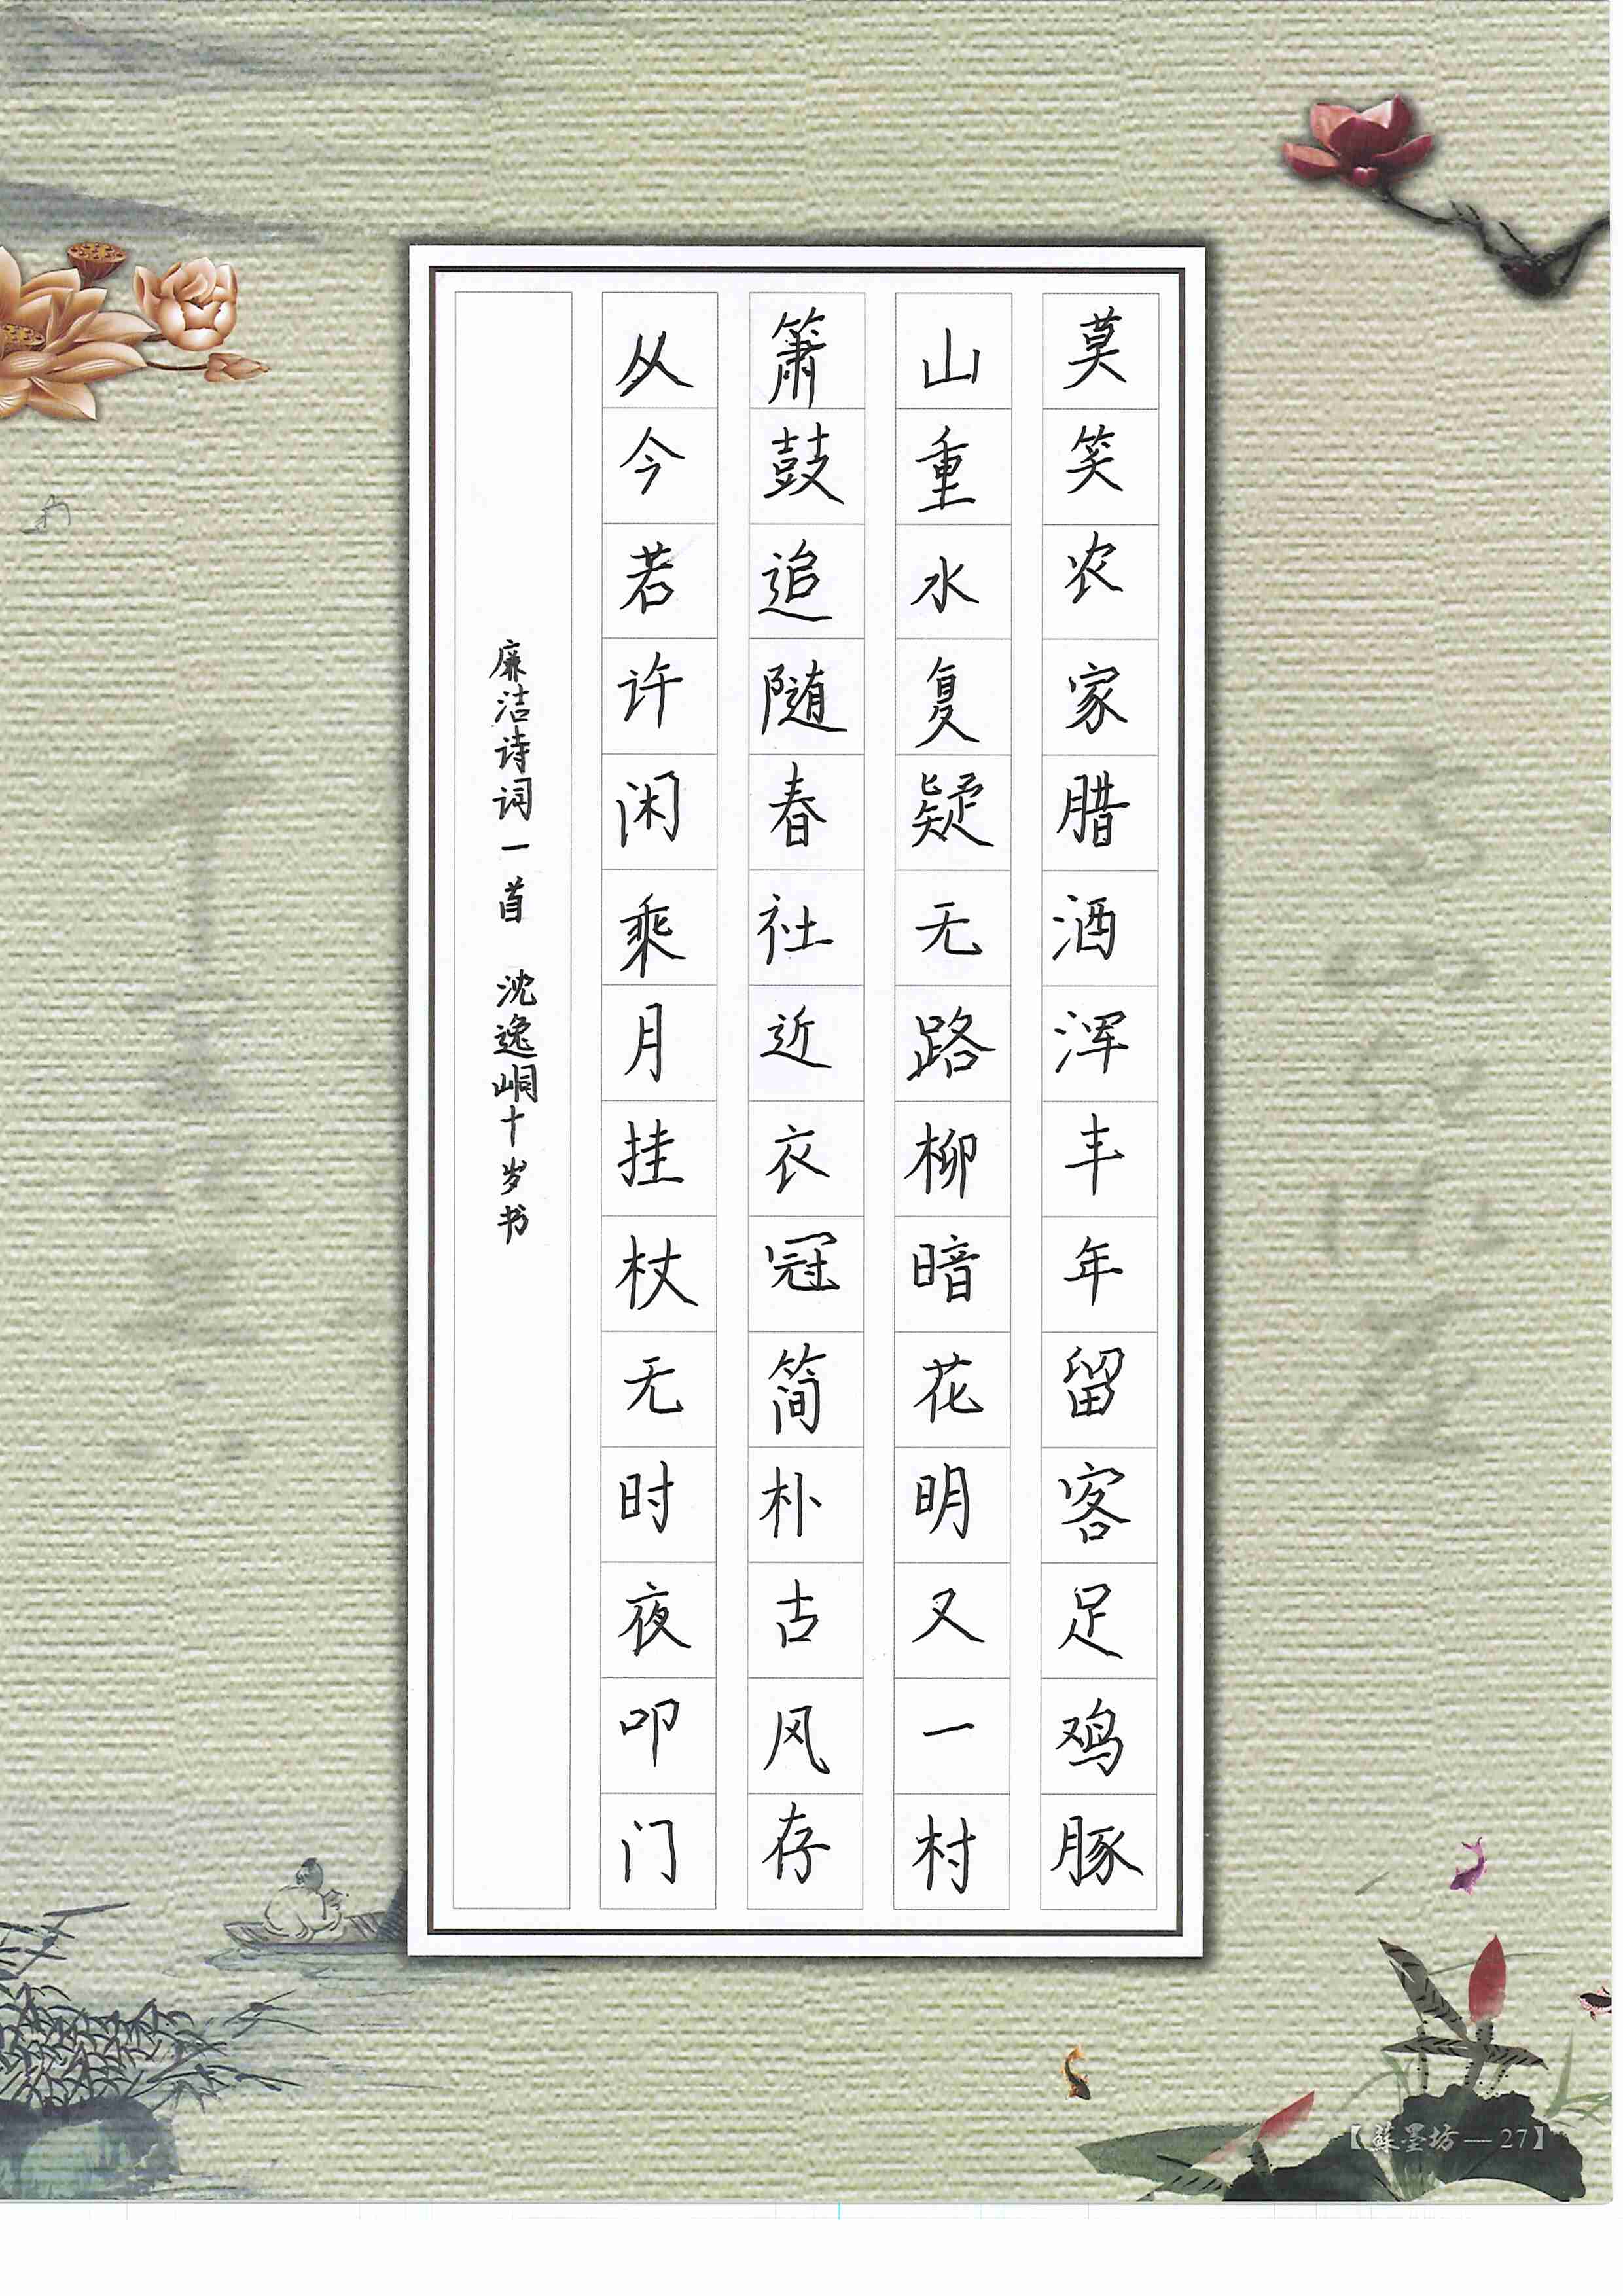 莫笑农家腊酒浑丰年留客足鸡豚
山重水复疑无路柳暗花明又一村
箫鼓追随春社近衣冠简朴古风存
从今若许闲乘月挂杖无时夜叩门
廉洁诗词一首 沈逸峒十岁书
【蘇墨坊—27】